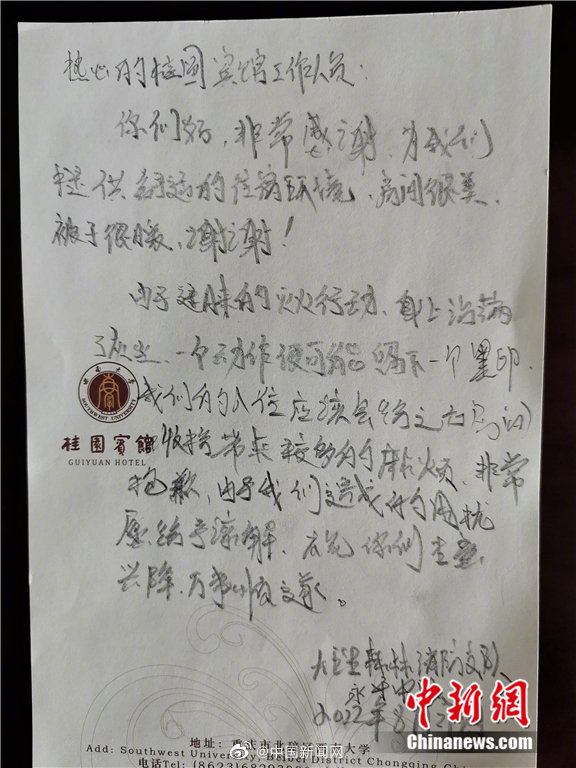 热心的桂园宾馆工作人员：
你们好，非常感谢，为我们
提供舒适的住宿环境，房间很美，
被子很暖，谢谢！
由于连日来的灭火行动，身上沾满
了灰尘，一个动作便可能留下一个黑印，
我们的入住应该会给之后房间
收拾带来较多的麻烦，非常
抱歉，由于我们造成的困扰
愿给予谅解，祝你们生意
兴隆，万事顺意。
西南大学
SOUTHWEST UNIVERSITY
桂園賓館
GUIYUAN HOTEL
森林消防支队
2022年8月2
地址：重庆市北碚区 大学
Add: Southwest University, Beibei District Chongqing China
电话Tel: (8623)68
@中国新闻网
中新网
Chinanews.com